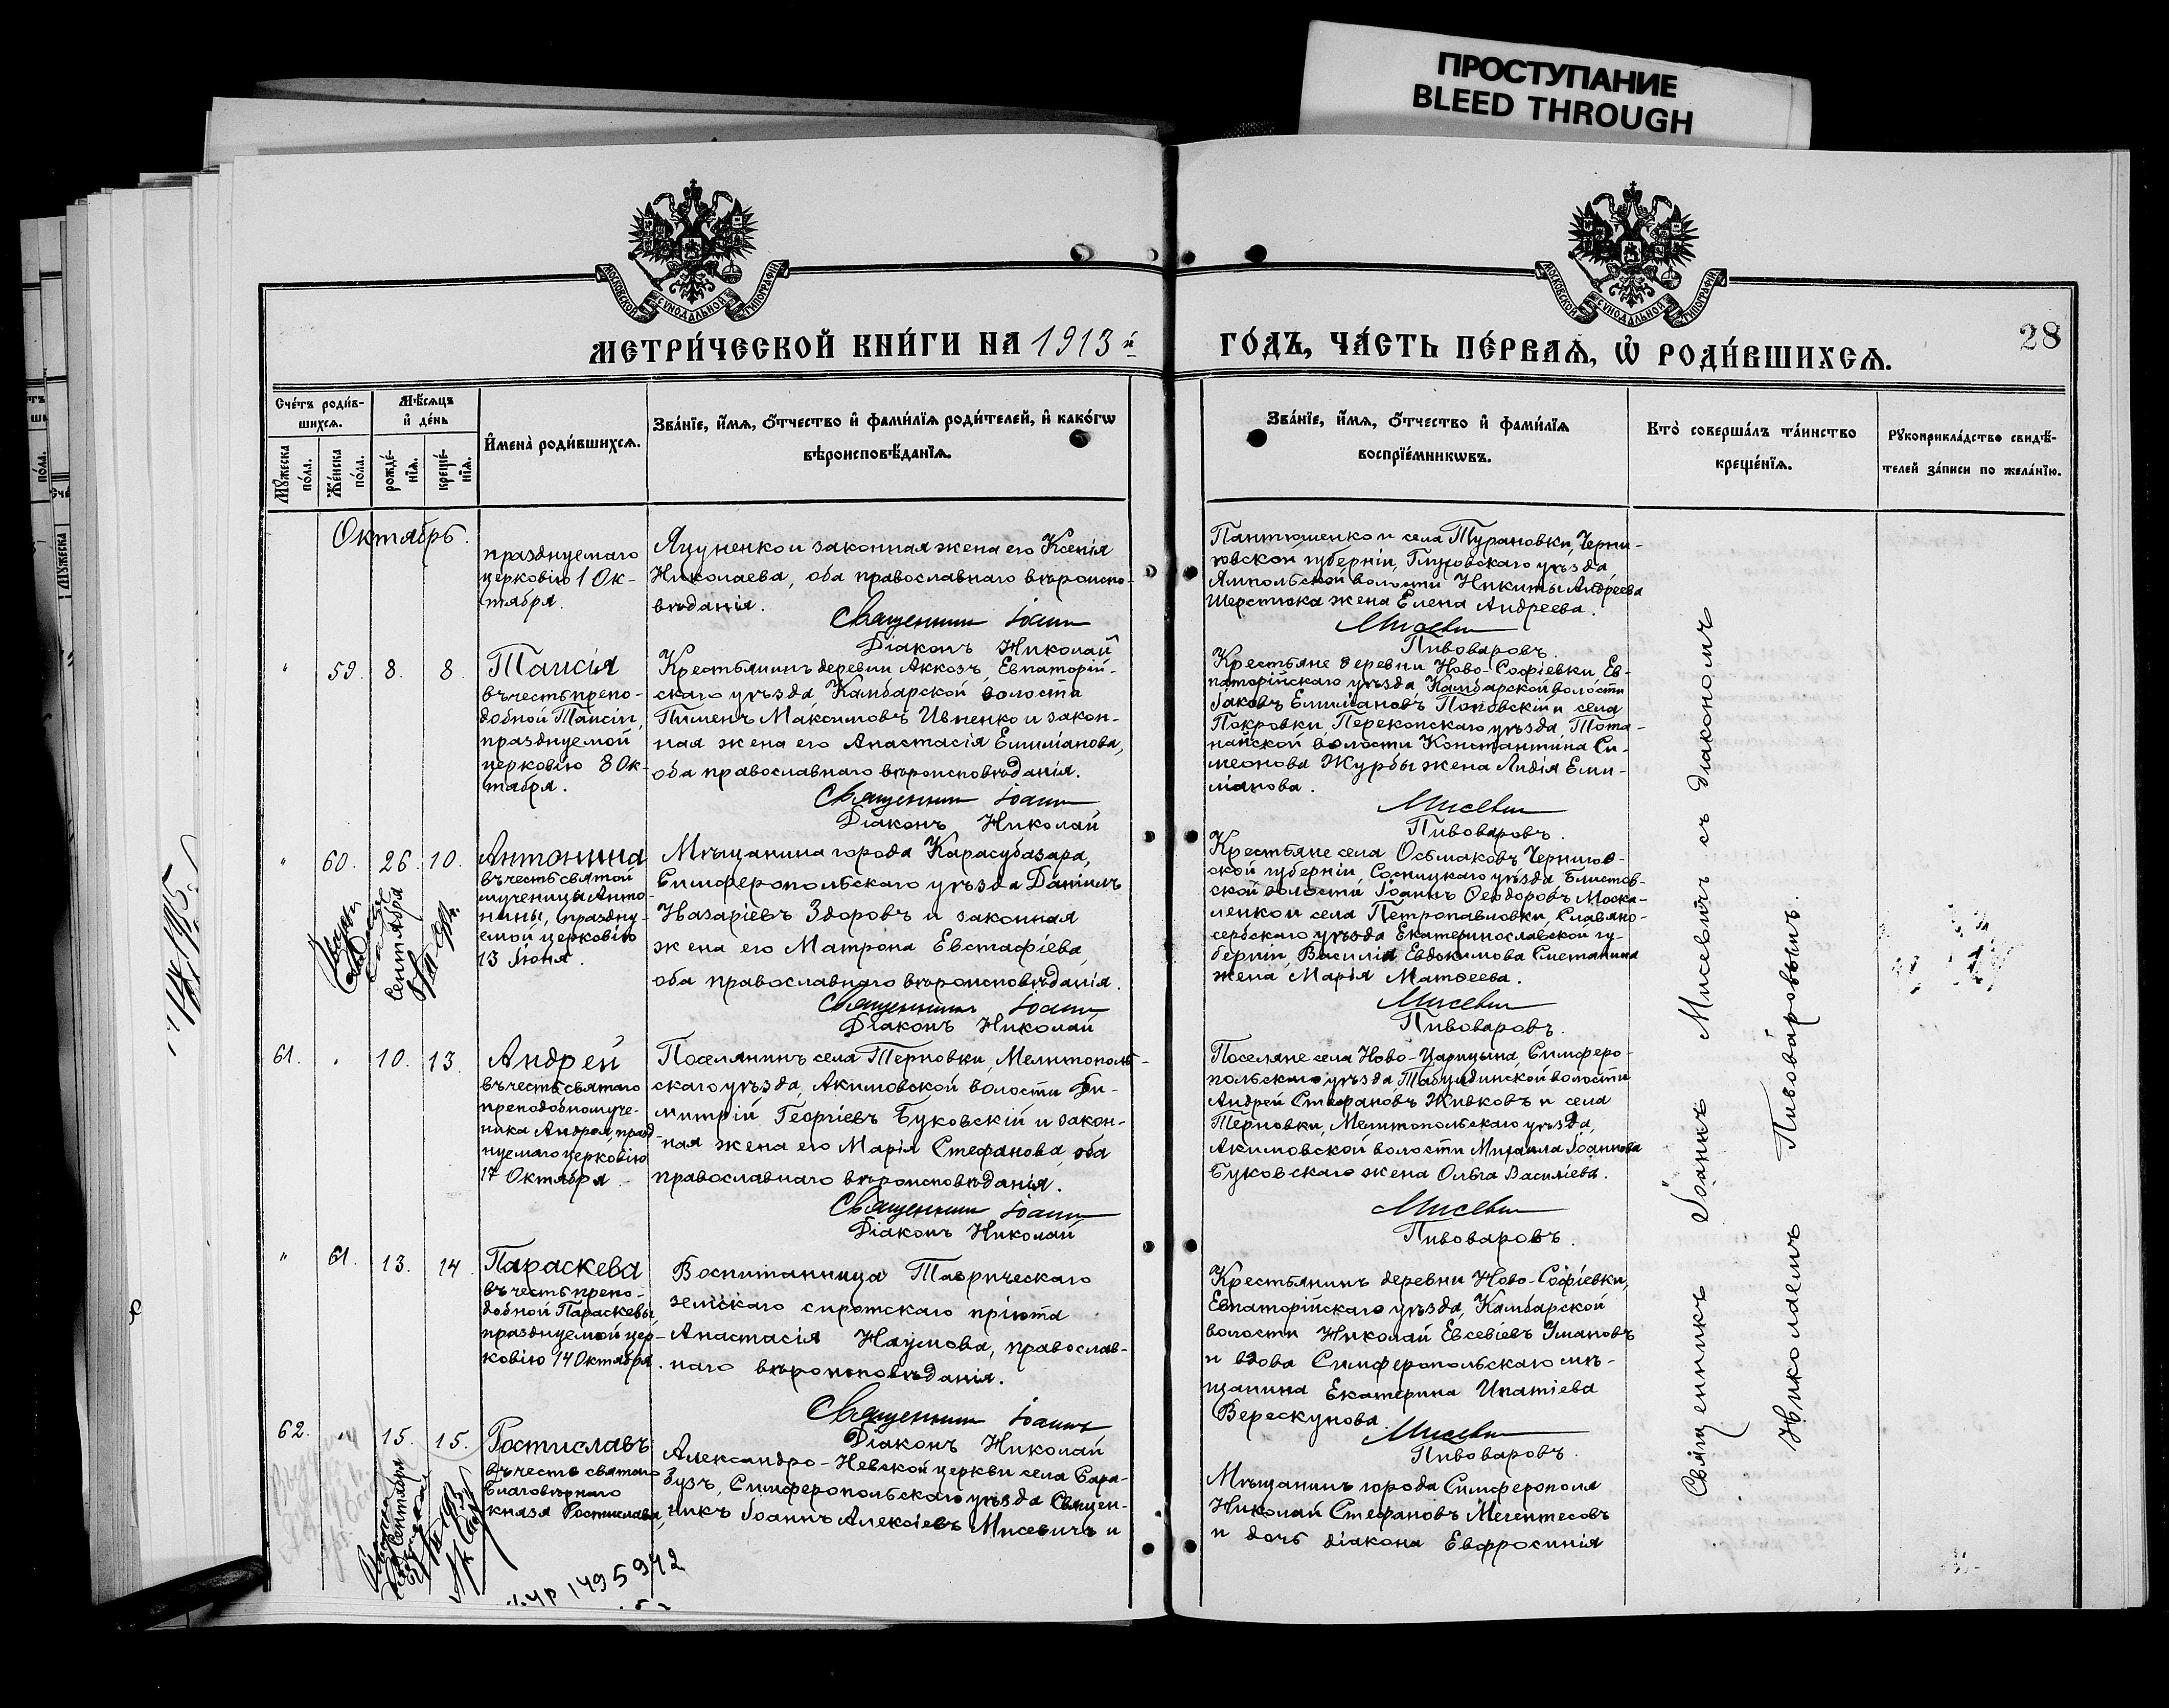 ПРОСТУПАНИЕ
BLEED THROUGH
МОСКОВСКОЙ СѴНОДАЛЬНОЙ ТИПОГРАФІИ
МОСКОВСКОЙ СѴНОДАЛЬНОЙ ТИПОГРАФІИ
МЕТРИ́ЧЕСКОЙ КНИ́ГИ НА 1913й
ГО́ДЪ, ЧА́СТЬ ПЕ́РВАѦ, Ѡ҆ РОДИ́ВШИХСѦ.
28
Сче́тъ роди́в-
шихсѧ.
Мꙋ́жеска
по́ла.
Же́нска
по́ла.
Мѣ́сѧцъ
и҆ де́нь
рожде́-
нїѧ.
креще́-
нїѧ.
И҆мена̀ роди́вшихсѧ.
Зва́нїе, и҆́мѧ, ѻ҆́тчество и҆ фами́лїѧ роди́телей, и҆ како́гѡ
вѣроисповѣ́данїѧ.
Зва́нїе, и҆́мѧ, ѻ҆́тчество и҆ фами́лїѧ
воспрїе́мникѡвъ.
Кто̀ соверша́лъ та́инство
креще́нїѧ.
Рꙋкоприкла́дство свидѣ́-
телей за́писи по жела́нїю.
Октябрь.
празднуемаго
церковію 1 Ок-
тября.
Яцуненко и законная жена его Ксенія
Николаева, оба православнаго вѣроиспо-
вѣданія.
Священникъ Іоаннъ
Діаконъ Николай
Пантюшенко и села Турановки, Черни-
говской губерніи, Глуховскаго уѣзда
Ямпольской волости Никиты Андреева
Шерстюка жена Елена Андреева.
Мисевич
Пивоваровъ.
" 59. 8. 8.
Таисія
въ честь препо-
добной Таисіи,
празднуемой
церковію 8 Ок-
тября.
Крестьянинъ деревни Аккозъ, Евпаторій-
скаго уѣзда, Камбарской волости
Пименъ Максимовъ Ивненко и закон-
ная жена его Анастасія Емиліанова,
оба православнаго вѣроисповѣданія.
Священникъ Іоаннъ
Діаконъ Николай
Крестьяне деревни Ново-Софіевки, Ев-
паторійскаго уѣзда, Камбарской волости
Іаковъ Емиліановъ Поповскій и села
Покровки, Перекопскаго уѣзда, Тота-
найской волости Константина Си-
меонова Журбы жена Лидія Еми-
ліанова.
Мисевич
Пивоваровъ.
" 60. 26. 10.
Сентября
Антонина
въ честь святой
мученицы Анто-
нины, праздну-
емой церковію
13 Іюня.
Мѣщанина города Карасубазара,
Симферопольскаго уѣзда Даніилъ
Назаріевъ Здоровъ и законная
жена его Матрона Евстафіева,
оба православнаго вѣроисповѣданія.
Священникъ Іоаннъ
Діаконъ Николай
Крестьяне села Осьмаковъ, Чернигов-
ской губерніи, Сосницкаго уѣзда Блистов-
ской волости, Іоаннъ Ѳеодоровъ Моска-
ленко и села Петропавловки, Славяно-
сербскаго уѣзда Екатеринославской гу-
берніи, Василія Евдокимова Сметанина
жена Марія Матѳеева.
Мисевич
Пивоваровъ.
61. " 10. 13.
Андрей
въ честь святаго
преподобномуче-
ника Андрея, празд-
нуемаго церковію
17 Октября.
Поселянинъ села Терновки, Мелитополь-
скаго уѣзда, Акимовской волости Ди-
митрій Георгіевъ Буковскій и закон-
ная жена его Марія Стефанова, оба
православнаго вѣроисповѣданія.
Священникъ Іоаннъ
Діаконъ Николай
Поселяне села Ново-Царицына, Симферо-
польскаго уѣзда, Табулдинской волости
Андрей Стефановъ Живковъ и села
Терновки, Мелитопольскаго уѣзда,
Акимовской волости Михаила Іоаннова
Буковскаго жена Ольга Василіева.
Мисевич
Пивоваровъ.
" 61. 13. 14.
Параскева
въ честь препо-
добной Параскевы,
празднуемой цер-
ковію 14 Октября.
Воспитанница Таврическаго
земскаго сиротскаго пріюта
Анастасія Наумова, православ-
наго вѣроисповѣданія.
Священникъ Іоаннъ
Діаконъ Николай
Крестьянинъ деревни Ново-Софіевки,
Евпаторійскаго уѣзда, Камбарской
волости Николай Евсевіевъ Умановъ
и вдова Симферопольскаго мѣ-
щанина Екатерина Ипатіева
Верескунова.
Мисевич
Пивоваровъ.
62. " 15. 15.
Сентября
Ростиславъ
въ честь святаго
благовѣрнаго
князя Ростислава,
Александро-Невской церкви села Сара-
бузъ, Симферопольскаго уѣзда Священ-
никъ Іоаннъ Алексіевъ Мисевичъ и
Мѣщанинъ города Симферополя
Николай Стефановъ Мелентесовъ
и дочь діакона Евфросинія
Священникъ Іоаннъ Мисевичъ съ діакономъ
Николаемъ Пивоваровымъ.